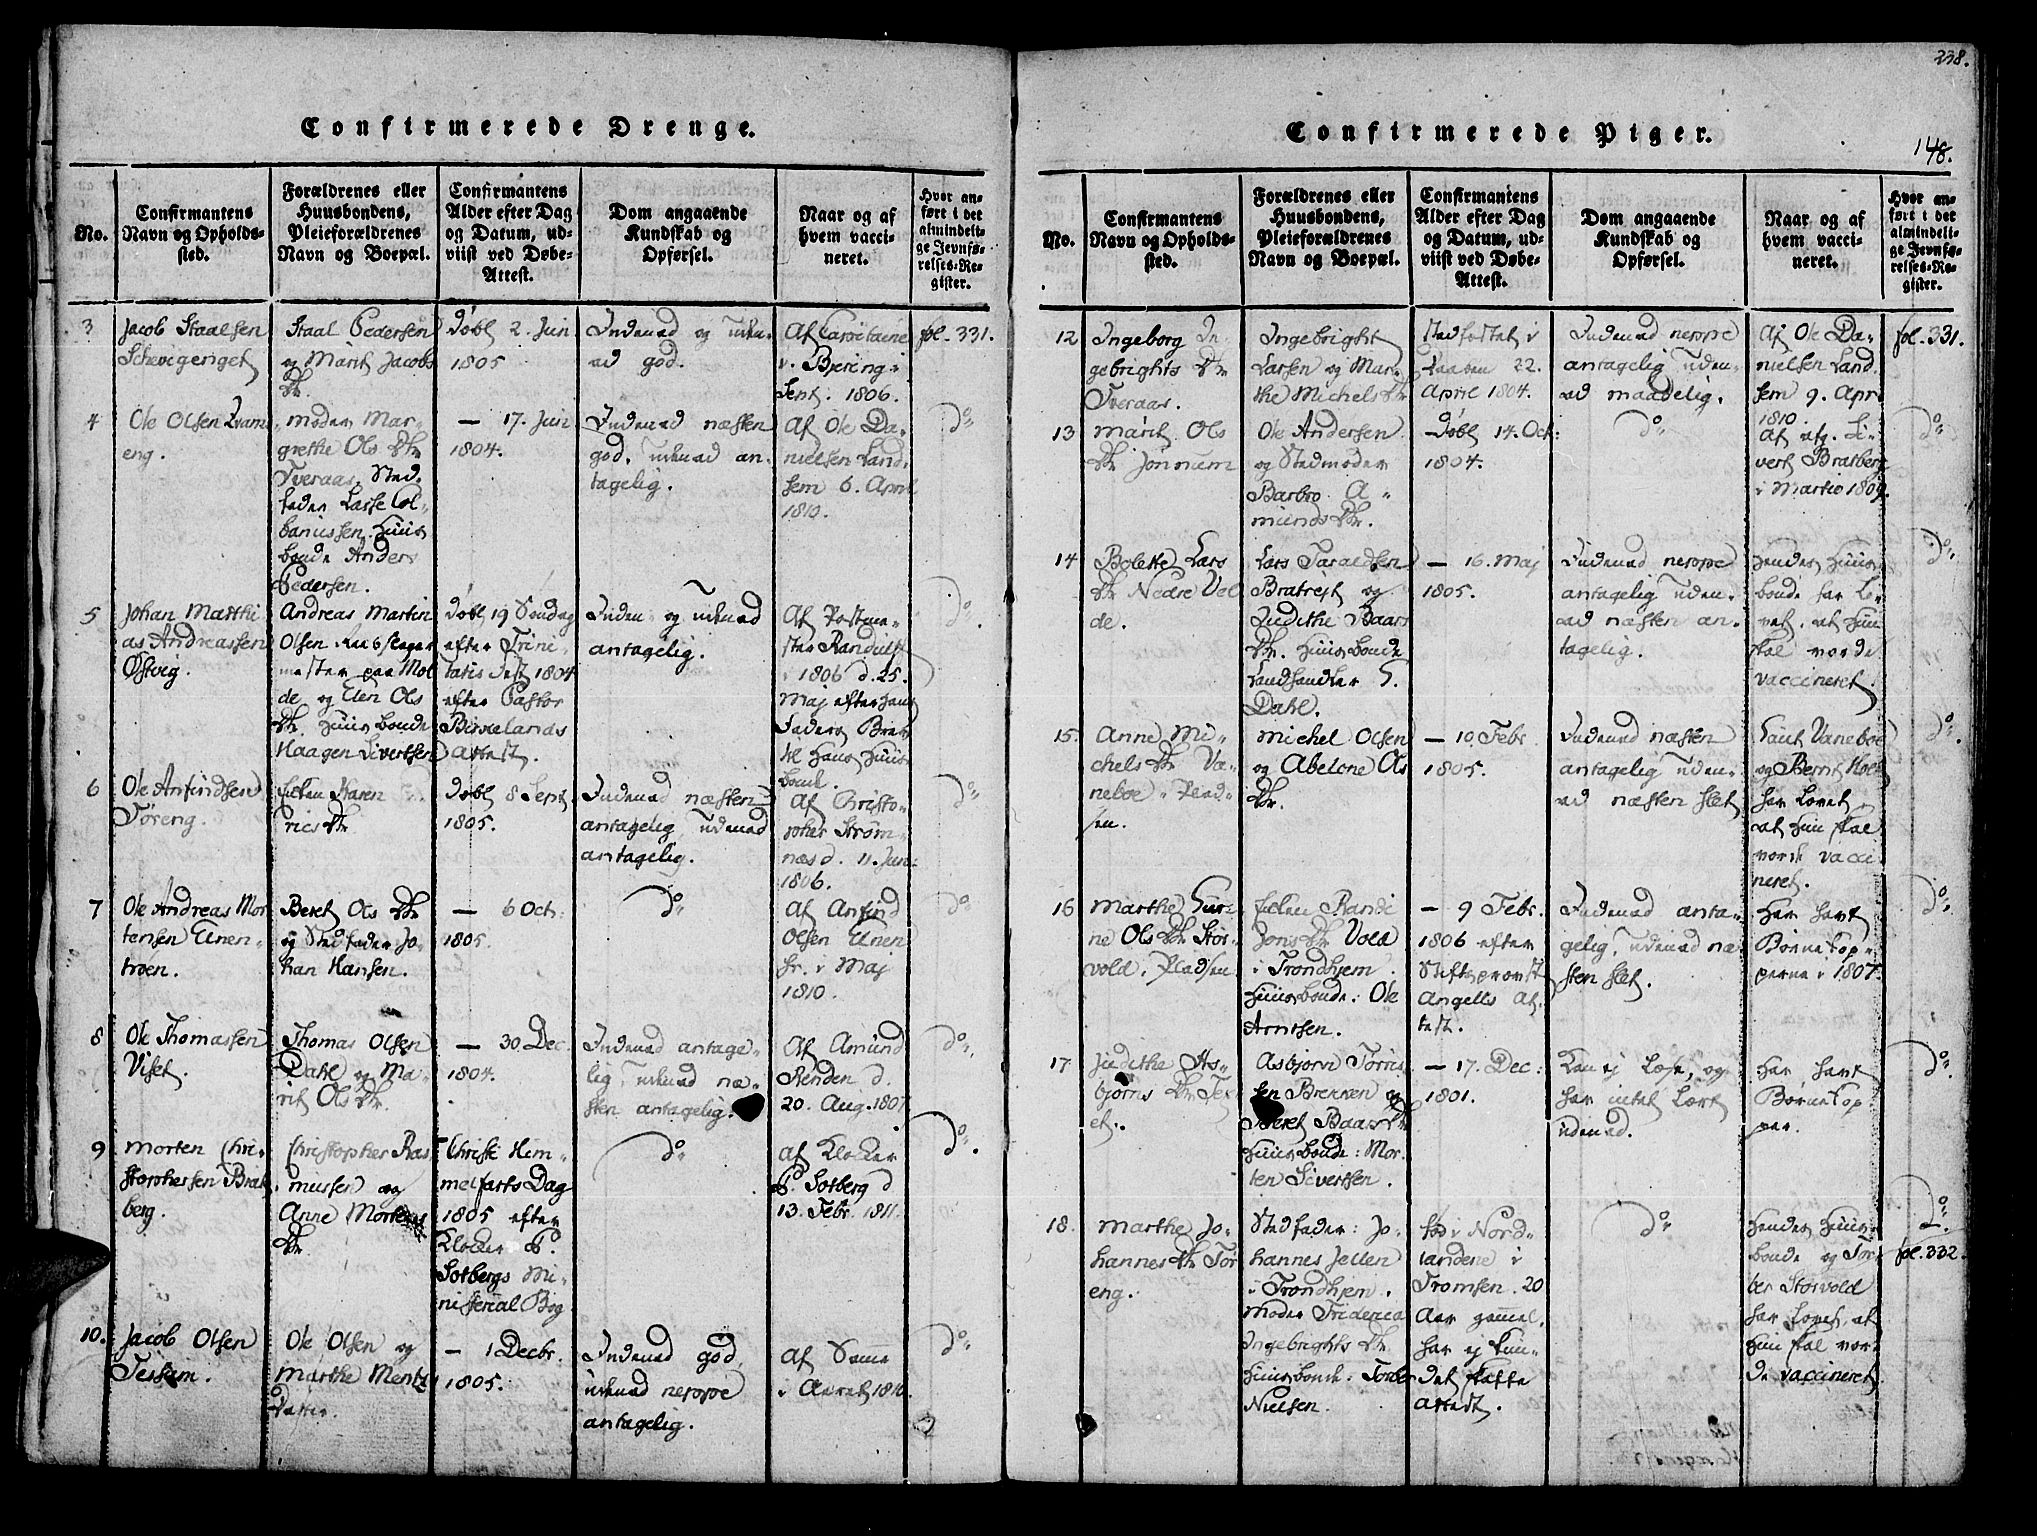 238.
Confirmerede Drenge.
No.
Confirmantens Navn og Opholds-sted.
Forældrenes eller Huusbondens, Pleieforældrenes Navn og Boepæl.
Confirmantens Alder efter Dag og Datum, ud-viist ved Døbe-Attest.
Dom angaaende Kundskab og Opførsel.
Naar og af hvem vacci-neret.
Hvor an-ført i det almindeli-ge Jevnfø-relses-Re-gister.
3
Jacob Staalsen
Staal Pedersen
og Marit Jacobs
Dtr
Døbt 2. Jun
1805
Indenad og uden-
ad god.
Af Capitaine
v. Bjering i
Sept. 1806.
fol. 331.
4
Ole Olsen Kvam
eng.
moder Mar-
grethe Ols Dtr
Tveraas. Sted-
fader Lasse Col-
banussen. Huus
bonde Anders
Pedersen.
— 17. Jun
1804.
Indenad næsten
god, udenad an-
tagelig.
Af Ole Da-
nielsen Land-
sem 6. April
1810.
Do
5
Johan Matthi
as Andreassen
Østvig.
Andreas Martin
Olsen Reebslager
mester paa Mol
de og Elen Ols
Dtr. Huusbonde
Haagen Sivertsen
Døbt 19 Søndag
efter Trini-
tatis Fest 1804
efter Pastor
Birkelands
Attest.
Inden- og udenad
antagelig.
Af Postme-
ster Randulf
i 1806 d. 25.
Maj efter hans
Faders Brev
til hans Huus
bonde.
Do.
6
Ole Anfindsen
Tøreng.
Karen
Døbt 8 Sept
1805.
Indenad næsten
antagelig, udenad
antagelig.
Af Christo-
pher Strøm-
næs d. 11. Jun:
1806.
Do
7
Ole Andreas Mor
tensen Elnen-
troen.
Beret Ols Dtr
og Stedfader Jo-
han Hansen.
— 6 Oct:
1805.
Do
Af Anfind
Olsen Elnen
i Maj
1810.
Do
8
Ole Thomassen
Viset.
Thomas Olsen
Dahl og Ma-
rit Ols Dtr.
— 30 Dec.
1804.
Indenad antage-
lig, udenad næ-
sten antagelig.
Af Amund
Renden d.
20. Aug. 1807
Do.
9
Morten Chri-
stophersen Brat
berg.
Christopher Ras
mussen og
Anne Mortens
Dtr
Christi Him-
melfarts Dag
1805 efter
Klocker P.
Solbergs Mi-
nisterial Bog
Do
Af Klocker
P. Solberg d
13. Febr. 1811.
Do.
10.
Jacob Olsen
Teskim.
Ole Olsen og
Marthe Mentz
Datter.
— 1 Decbr.
1805.
Indenad god
udenad neppe
antagelig.
Af Samme
i Aaret 1810
Do.
Confirmerede Piger.
148.
No.
Confirmantens Navn og Opholds-sted.
Forældrenes eller Huusbondens, Pleieforældrenes Navn og Boepæl.
Confirmantens Alder efter Dag og Datum, ud-viist ved Døbe-Attest.
Dom angaaende Kundskab og Opførsel.
Naar og af hvem vacci-neret.
Hvor an-ført i det almindeli-ge Jevnfø-relses-Re-gister.
12
Ingeborg In-
gebrights Dtr
Tveraas.
Ingebright
Larsen og Mar-
the Michels Dtr
Stadfæstet i
Daaben 22.
April 1804.
Indenad neppe
antagelig uden-
ad maadelig.
Af Ole Da-
nielsen Land-
sem 9. Apr
1810.
fol. 331.
13
Marit Ols
Dtr Jønnum
Ole Andersen
og Stedmoder
Barbro A-
munds Dtr.
Døbt 14. Oct:
1804.
Do
Af afg. Si-
vert Bratberg
i Martio 1809.
Do
14
Bolette Lars
Dtr Nedre Vel
de.
Lars Taraldsen
Bratrejt og
Judithe Baars
Dtr. Huusbonde
Landhandler
Dahl.
— 16. Maj
1805.
Indenad neppe
antagelig uden-
ad næsten an-
tagelig.
Hendes Huus
bonde har lo-
vet, at hun
skal vorde
vaccineret.
Do.
15.
Anne Mi-
chels Dtr Va-
neboe Plad-
sen.
Michel Olsen
og Abelone Ols
Dtr.
— 10 Febr
1805.
Indenad næsten
antagelig uden-
ad næsten slet
Vaneboe
og Bernt
har lovet
at hun skal
vorde vacci
neret.
Do.
16
Marthe Gur-
ne Ols Dtr Stor-
vold, Pladsen
Randi
Jons Dtr Vold
i Trondhjem.
Huusbonde: Ole
Arntsen.
— 9 Febr.
1806 efter
Stiftsprovst
Angells At-
test.
Indenad anta-
gelig, udenad næ
sten slet.
Har havt
Børnekop
perne i 1807.
Do
17
Judithe As-
bjørns Dtr
Asbjørn Torris
sen Brekken og
Beret Baars Dtr
Huusbonde: Mor-
ten Sivertsen.
— 17. Dec:
1801.
Kan ej læse, og
har intet lært
udenad.
Har havt
Børnekop
per.
Do.
18.
Marthe Jo-
hannes Dtr Tør
eng.
Stedfader: Jo-
hannes Jellen
i Trondhjem.
Moder Friderica
Ingebrights Dtr
Huusbonde: Torber
Nielsen.
fød i Nord-
landene i
Tromsen. 20
Aar gammel.
har ej kun-
det skaffe
Attest.
Do
Hendes Huus-
bonde og Tor-
ber Storvold
har lovet, at
hun skal vor-
de vaccineret
Do
fol. 332.